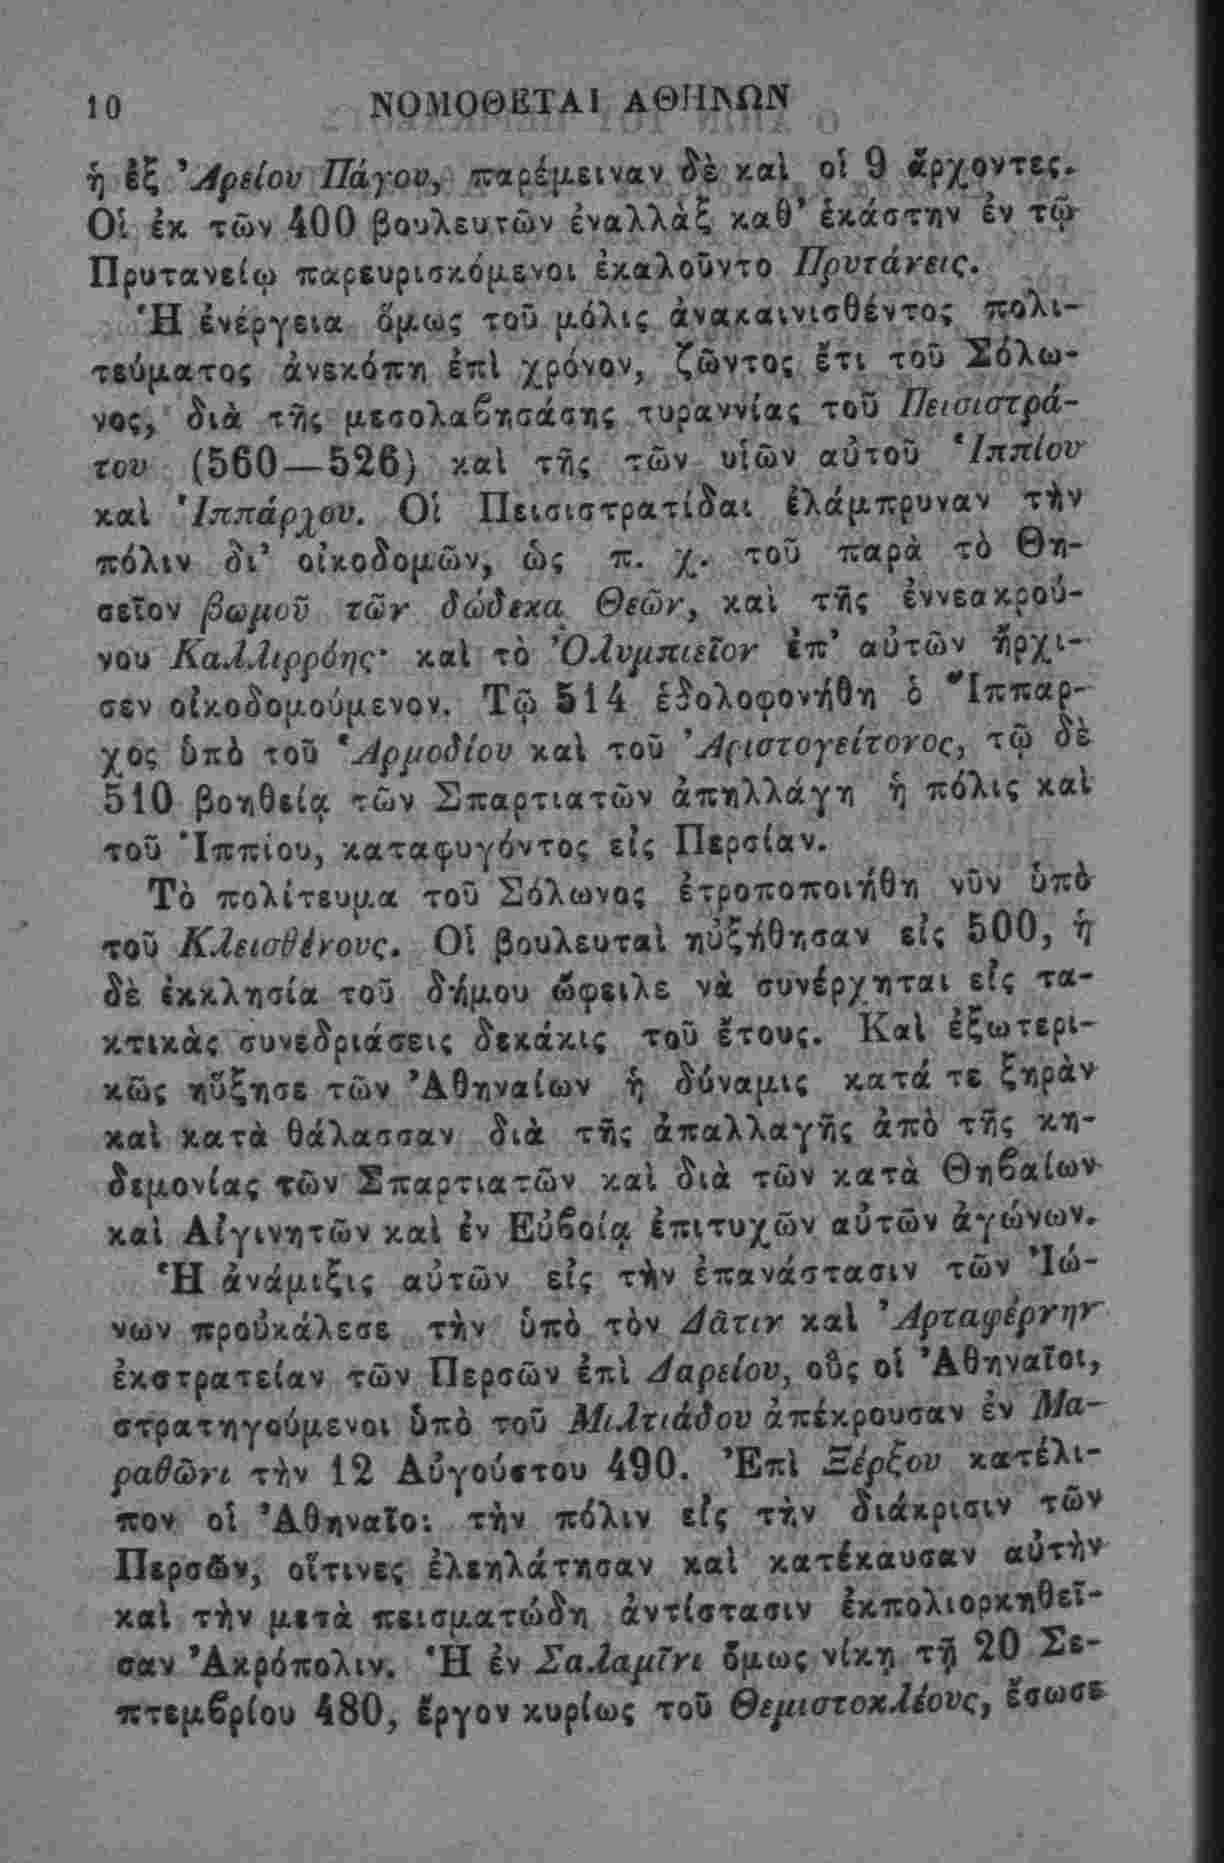 10 ΝΟΜΟΘΕΤΑΙ ΑΘΗΝΩΝ
ἡ ἐξ Ἀρείου Πάγου, παρέμειναν δὲ καὶ οἱ 9 ἄρχοντες.
Οἱ ἐκ τῶν 400 βουλευτῶν ἐναλλὰξ καθ' ἑκάστην ἐν τῷ
Πρυτανείῳ παρευρισκόμενοι ἐκαλοῦντο Πρυτάνεις.
Ἡ ἐνέργεια ὅμως τοῦ μόλις ἀνακαινισθέντος πολι-
τεύματος ἀνεκόπη ἐπὶ χρόνον, ζῶντος ἔτι τοῦ Σόλω-
νος, διὰ τῆς μεσολαβησάσης τυραννίας τοῦ Πεισιστρά-
του (560—526) καὶ τῆς τῶν υἱῶν αὐτοῦ Ἱππίου
καὶ Ἱππάρχου. Οἱ Πεισιστρατίδαι ἐλάμπρυναν τὴν
πόλιν δι' οἰκοδομῶν, ὡς π. χ. τοῦ παρὰ τὸ Θη-
σεῖον βωμοῦ τῶν δώδεκα Θεῶν, καὶ τῆς ἐννεακρού-
νου Καλλιρρόης· καὶ τὸ Ὀλυμπιεῖον ἐπ' αὐτῶν ἤρχι-
σεν οἰκοδομούμενον. Τῷ 514 ἐδολοφονήθη ὁ Ἵππαρ-
χος ὑπὸ τοῦ Ἁρμοδίου καὶ τοῦ Ἀριστογείτονος, τῷ δὲ
510 βοηθείᾳ τῶν Σπαρτιατῶν ἀπηλλάγη ἡ πόλις καὶ
τοῦ Ἱππίου, καταφυγόντος εἰς Περσίαν.
Τὸ πολίτευμα τοῦ Σόλωνος ἐτροποποιήθη νῦν ὑπὸ
τοῦ Κλεισθένους. Οἱ βουλευταὶ ηὐξήθησαν εἰς 500, ἡ
δὲ ἐκκλησία τοῦ δήμου ὤφειλε νὰ συνέρχηται εἰς τα-
κτικὰς συνεδριάσεις δεκάκις τοῦ ἔτους. Καὶ ἐξωτερι-
κῶς ηὔξησε τῶν Ἀθηναίων ἡ δύναμις κατά τε ξηρὰν
καὶ κατὰ θάλασσαν διὰ τῆς ἀπαλλαγῆς ἀπὸ τῆς κη-
δεμονίας τῶν Σπαρτιατῶν καὶ διὰ τῶν κατὰ Θηβαίων
καὶ Αἰγινητῶν καὶ ἐν Εὐβοίᾳ ἐπιτυχῶν αὐτῶν ἀγώνων.
Ἡ ἀνάμιξις αὐτῶν εἰς τὴν ἐπανάστασιν τῶν Ἰώ-
νων προὐκάλεσε τὴν ὑπὸ τὸν Δᾶτιν καὶ Ἀρταφέρνην
ἐκστρατείαν τῶν Περσῶν ἐπὶ Δαρείου, οὓς οἱ Ἀθηναῖοι,
στρατηγούμενοι ὑπὸ τοῦ Μιλτιάδου ἀπέκρουσαν ἐν Μα-
ραθῶνι τὴν 12 Αὐγούστου 490. Ἐπὶ Ξέρξου κατέλι-
πον οἱ Ἀθηναῖοι τὴν πόλιν εἰς τὴν διάκρισιν τῶν
Περσῶν, οἵτινες ἐλεηλάτησαν καὶ κατέκαυσαν αὐτὴν
καὶ τὴν μετὰ πεισματώδη ἀντίστασιν ἐκπολιορκηθεῖ-
σαν Ἀκρόπολιν. Ἡ ἐν Σαλαμῖνι ὅμως νίκη τῇ 20 Σε-
πτεμβρίου 480, ἔργον κυρίως τοῦ Θεμιστοκλέους, ἔσωσε